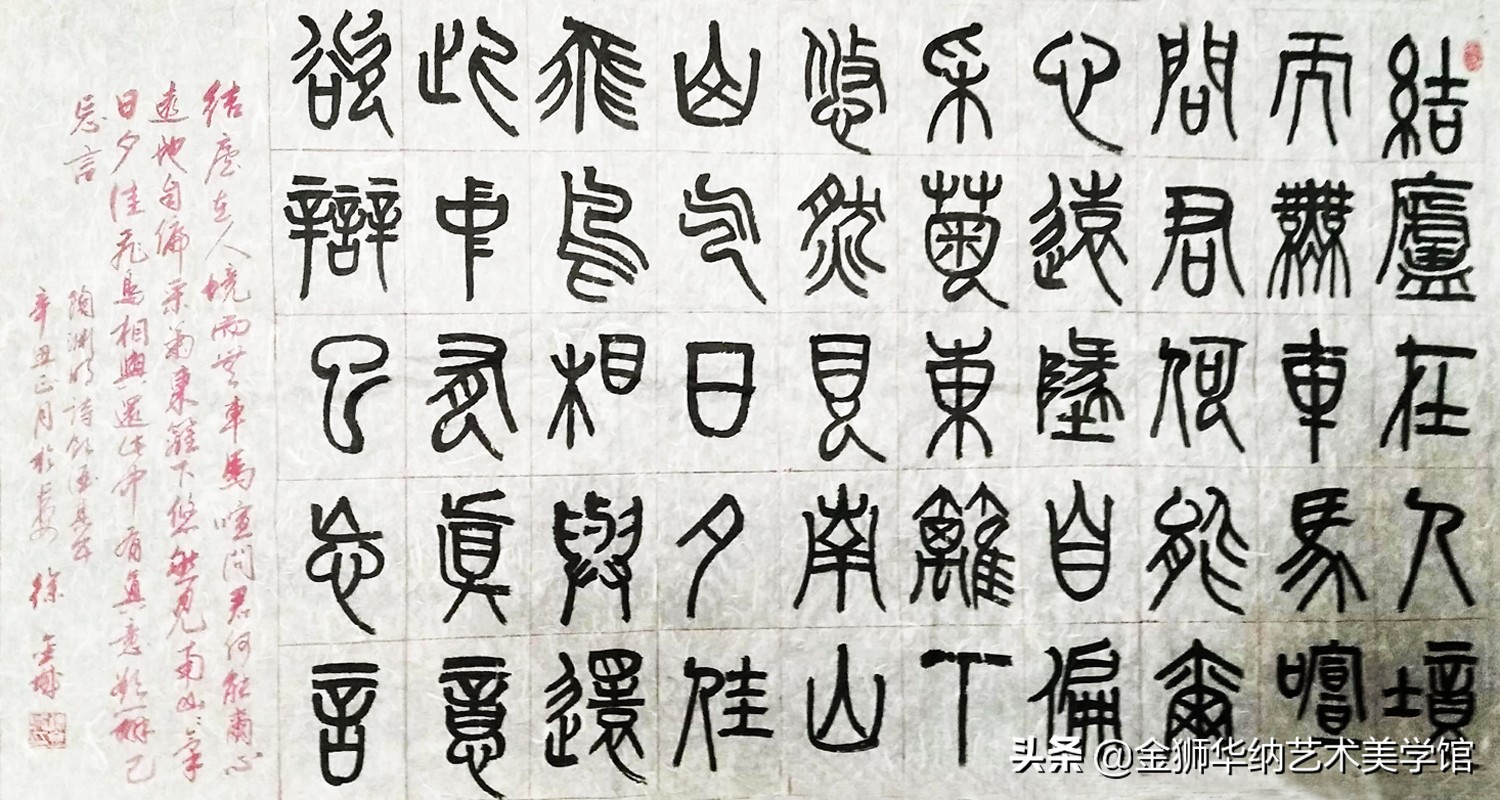 結廬在人境
而無車馬喧
問君何能爾
心遠地自偏
采菊東籬下
悠然見南山
山气日夕佳
飛鳥相與還
此中有真意
欲辯已忘言
结廬在人境而無車馬喧問君何能爾心
遠地自偏采菊東籬下悠然見南山〻氣
日夕佳飛鳥相與還此中有真意欲辯已
忘言
陶淵明詩飲酒其五
辛丑正月於 徐
头条 @金狮华纳艺术美学馆